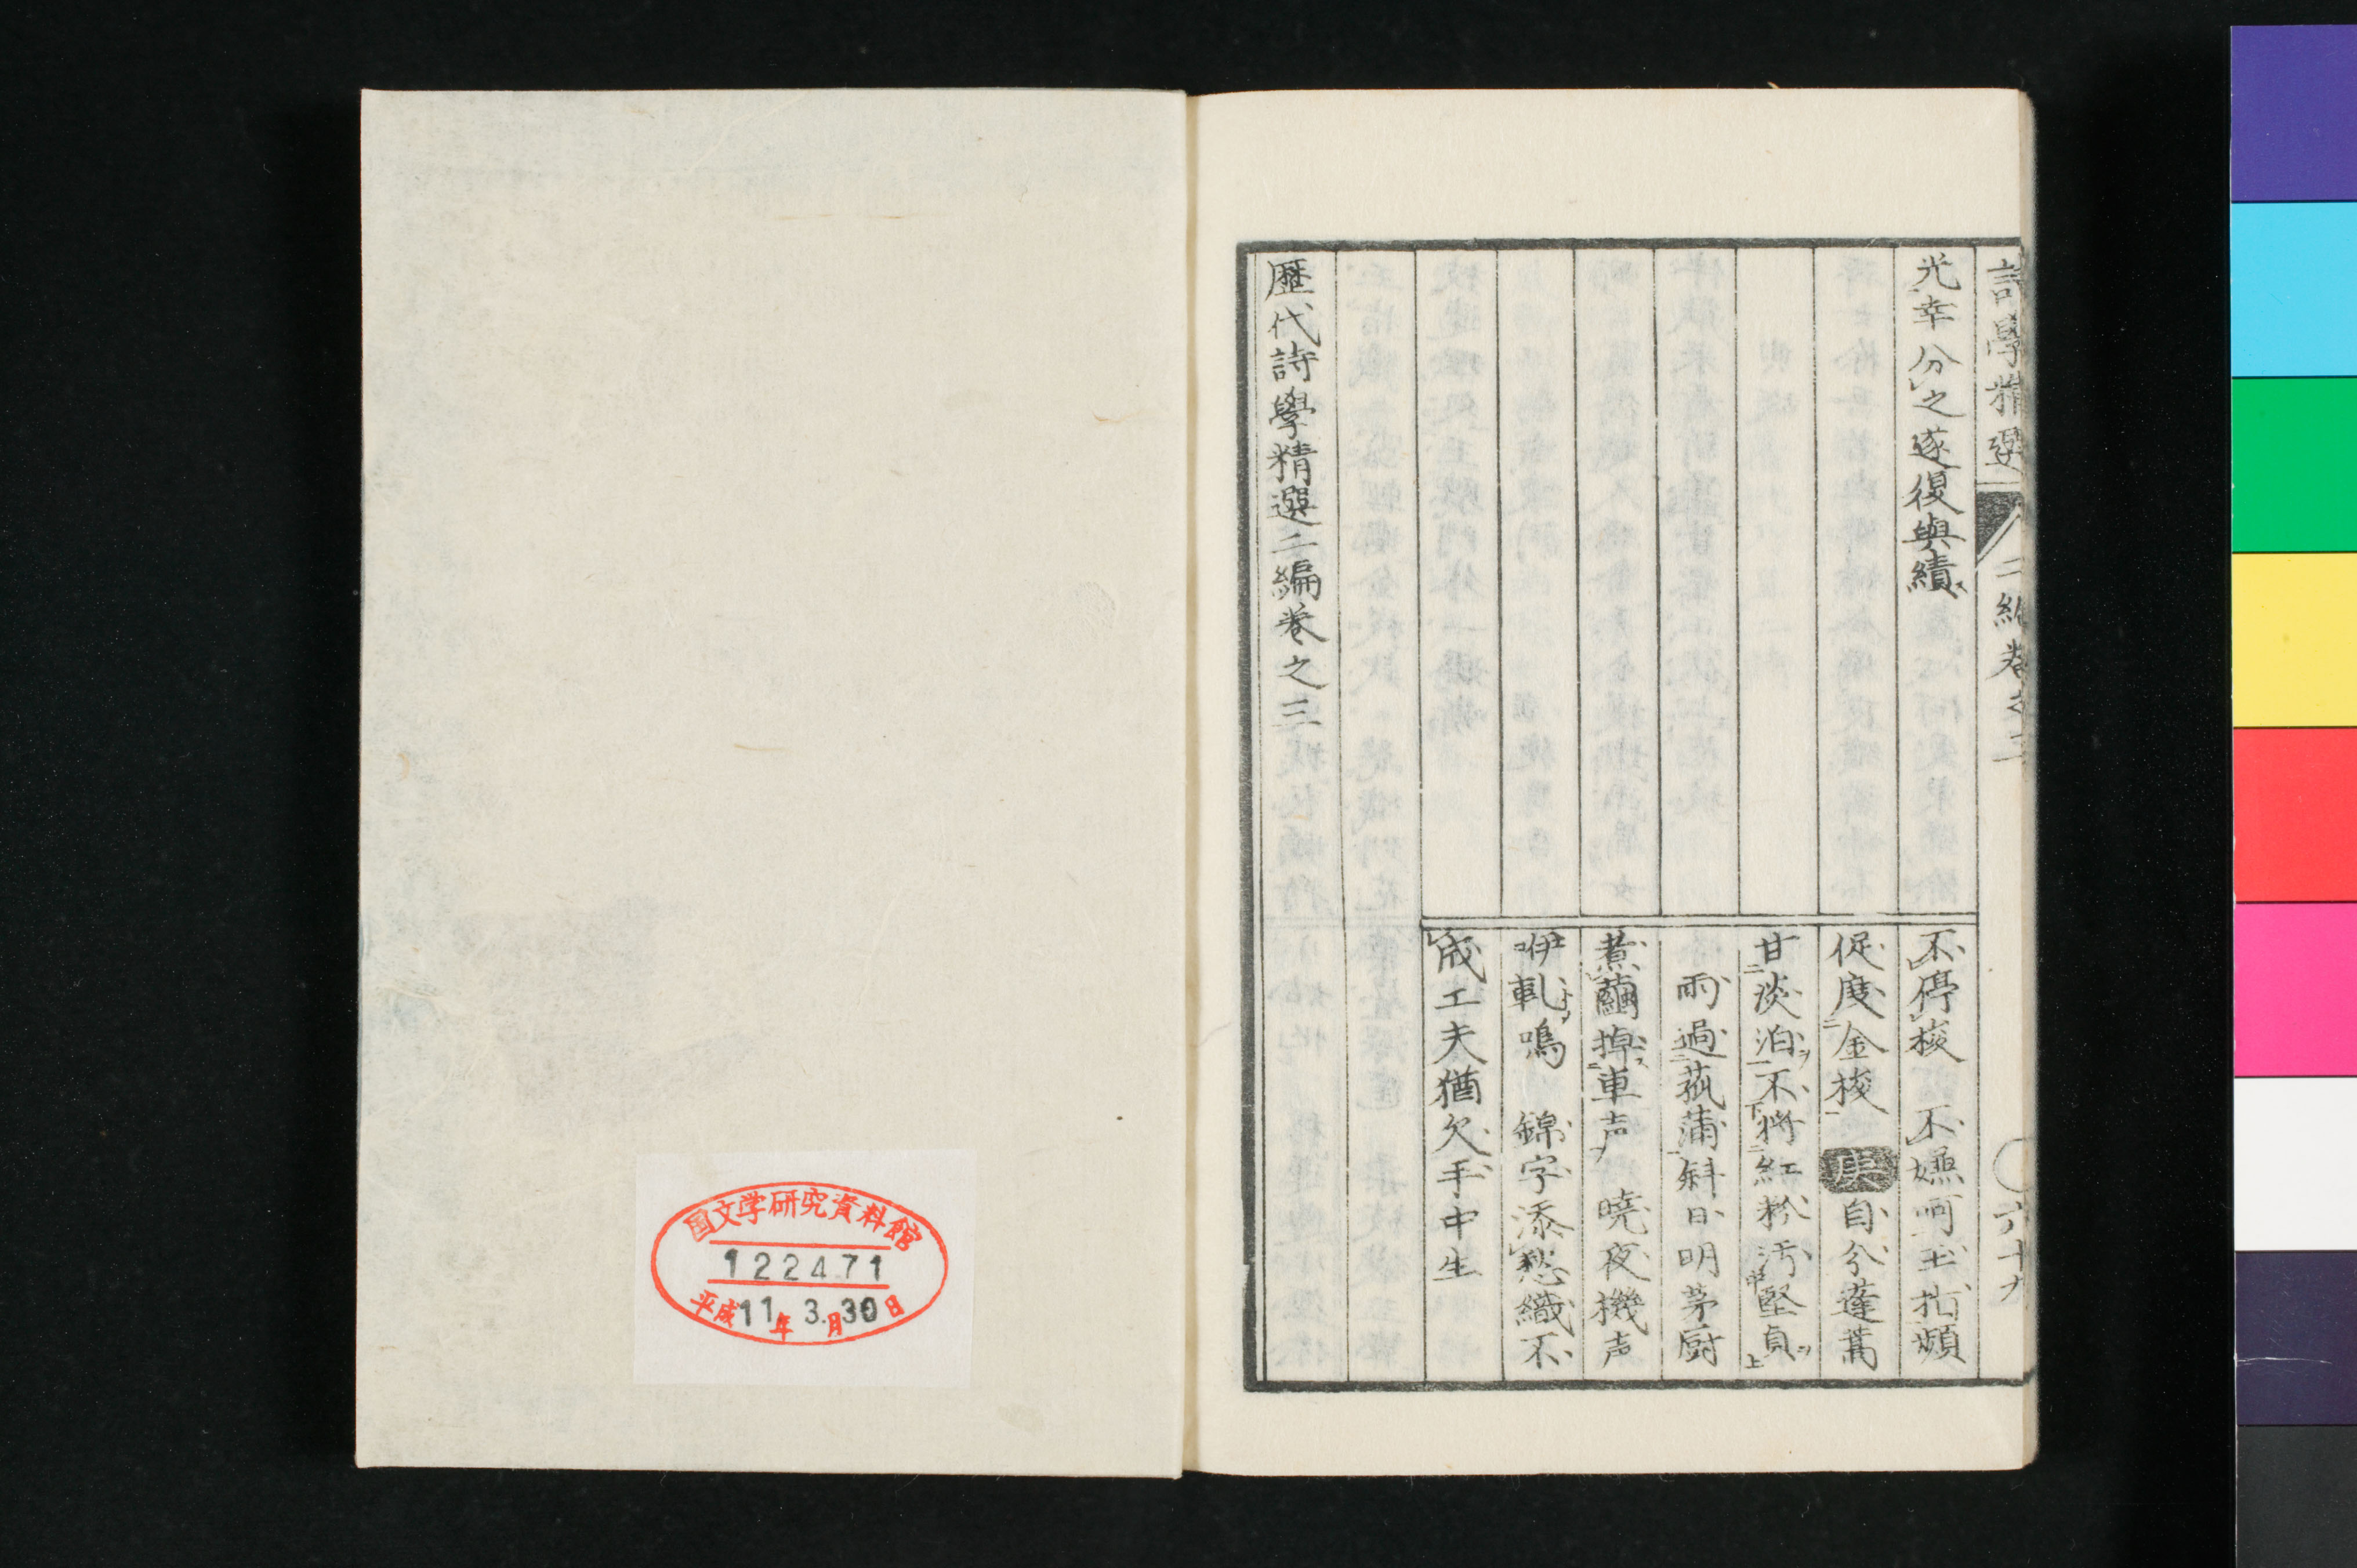 詩學精選
二編卷之三
六十九
光幸分之遂復與績
不停梭　不嫌呵玉指頻
促度金梭　庚自分蓬蒿
甘淡泊不將紅粉汚堅貞
雨過菰蒲斜日明茅厨
煮繭掉車声　曉夜機声
咿軋鳴　錦字添愁織不
成工夫猶欠手中生
歷代詩學精選二編卷之三
国文学研究資料館
122471
平成11年3月30日